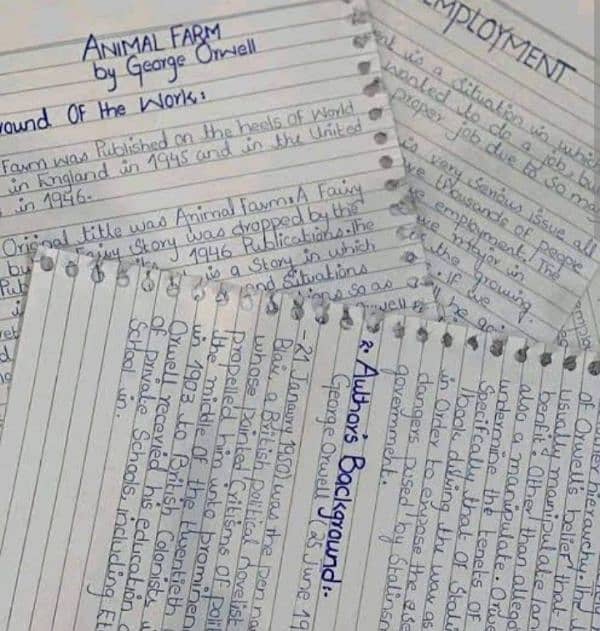 ANIMAL FARM
by George Orwell
round Of the Work:
Farm was Published on the heels of World
in England in 1945 and in the United
in 1946.
Original title was Animal Farm: A Fairy
Fairy Story was dropped by the
1946 Publications. The
is a Story in which
and Situations
so as
MPLOYMENT
is a situation in which
wanted to do a job, but
proper job due to so ma
very serious issue all
thousands of people
employment. The
major in
the growing
. If we
2. Author's Background:-
George Orwell (25 June 19
- 21 January 1950) was the pen na
Blair, a British political novelist
whose pointed Critisms of Polit
propelled him into prominen
the middle of the twentieth
in 1903 to British Colonists,
Orwell received his education
of private Schools, including Et
School in.
hierarchy. The
of Orwell's belief that
usually manipulate lan
benfit. Other than allego
also a manipulate. Orw
undermine the tenets of
Specifically that of Stali
book during the war as
in order to expose the ase
dangers posed by Stalinsm
government.